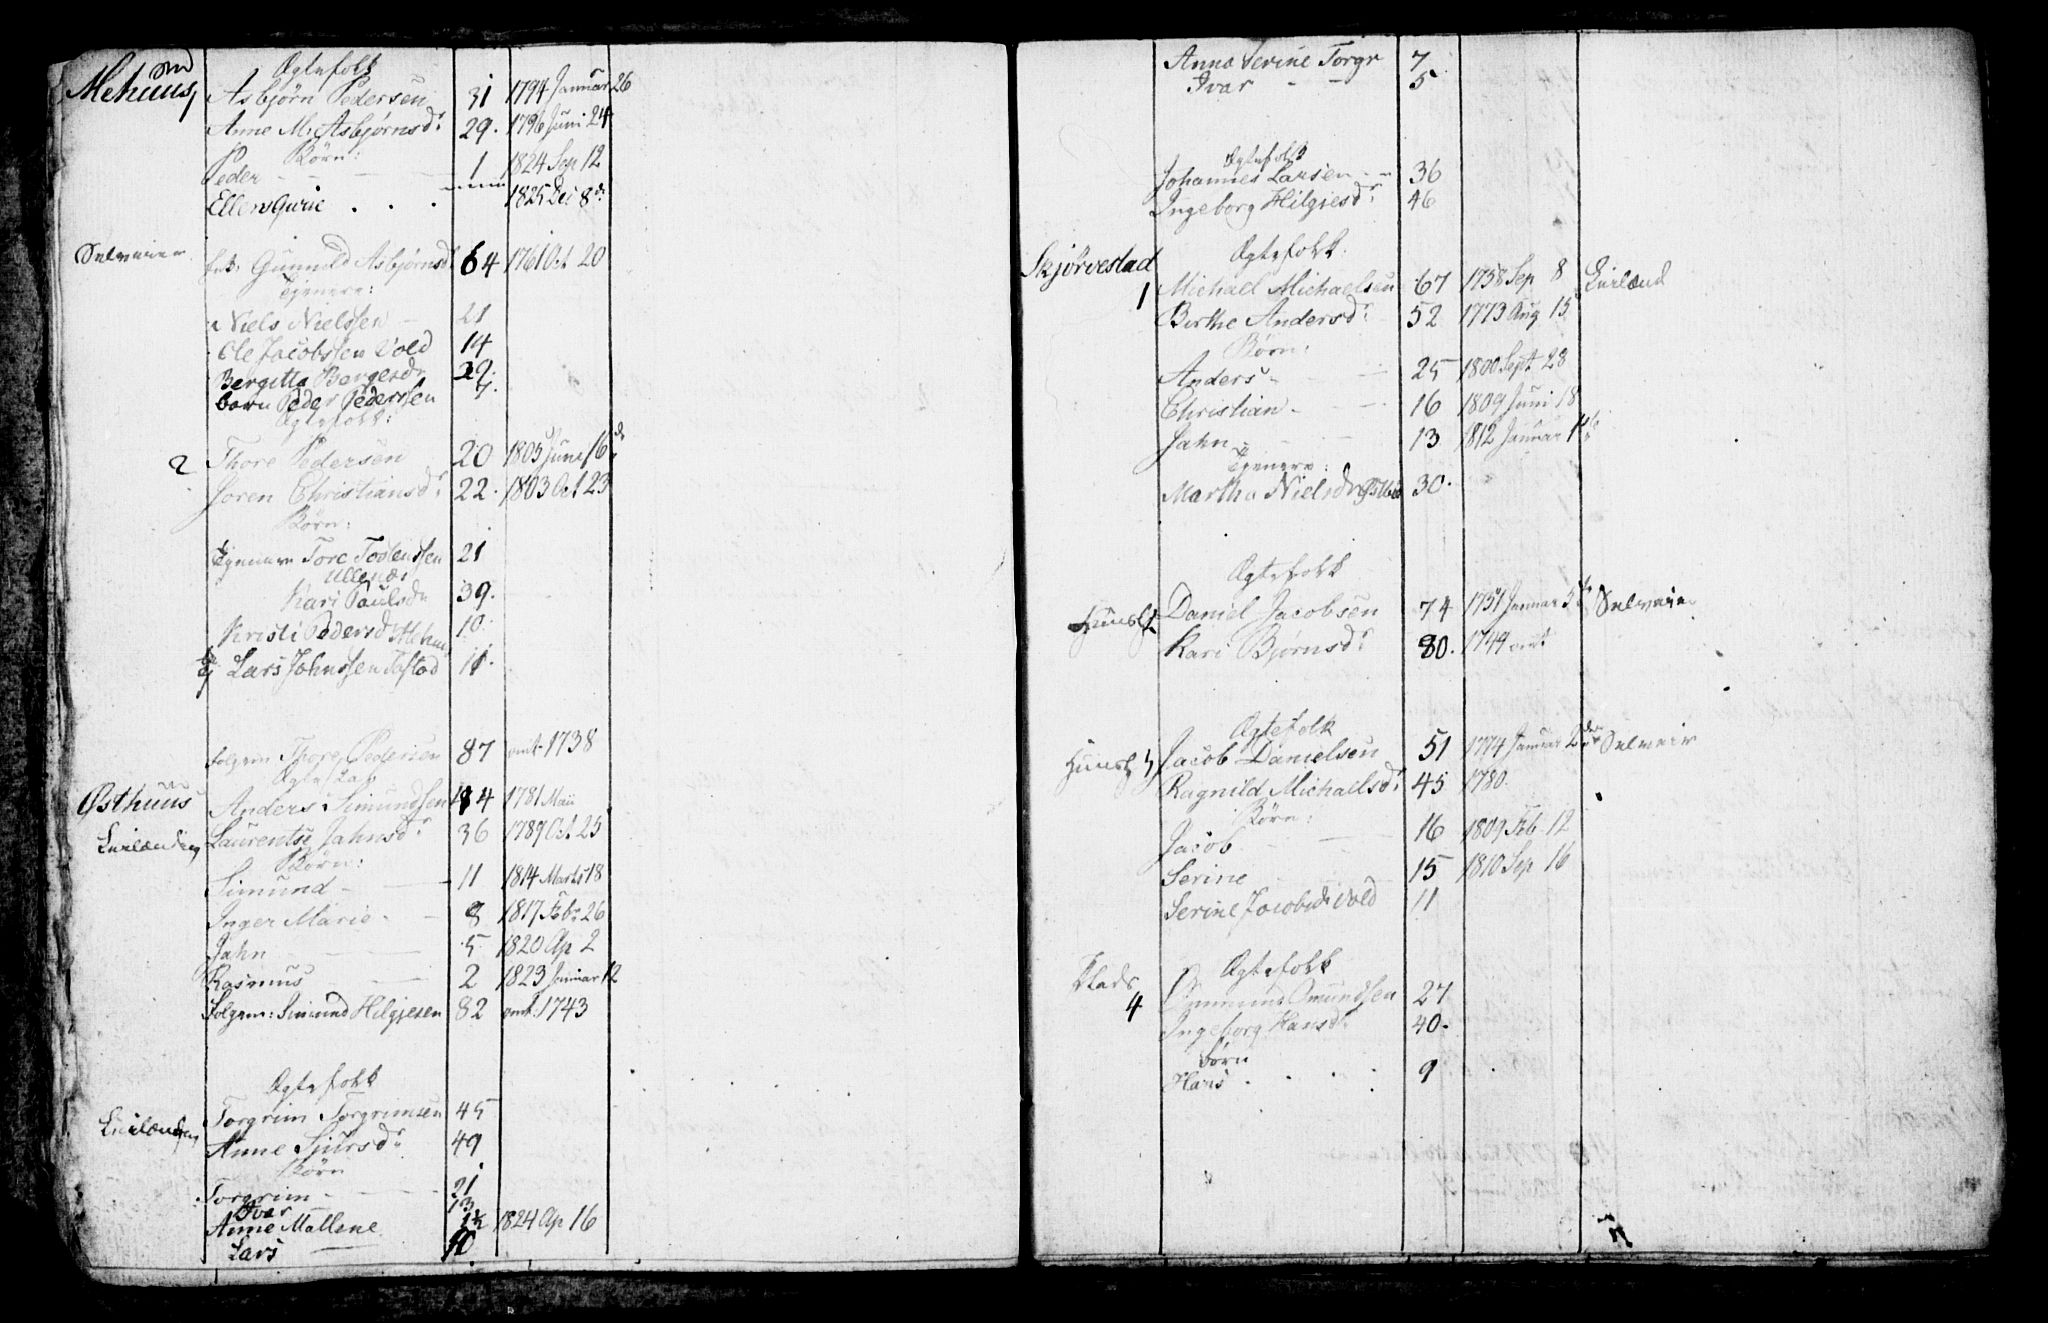 Mehuus 1
Ægtefolk
Asbjørn Pedersen 31 1794 Januar 26
Anne M. Asbjørnsdr 29. 1796 Juni 24
Børn:
Peder 1 1824 Sep 12
Ellen Gurie 1825 Dec 8de
Selveier Gunnild Asbjørnsdr 64 1761 Oct 20
Tjenere:
Niels Nielssen 21
Ole Jacobssen Vold 14
Bergitta Børgesdr
barn Peder Pederssen
Ægtefolk:
2 Thore Pedersen 20 1805 Juni 16de
Joren Christiansdr 22. 1803 Oct 23
Børn:
Tjenere Tore Tostenssen 21
Ullenæs
Kari Paulsdr 39.
Kristi Pedersdr Mehuus 10
Lars Johnssen Tostad 11.
Folgem Thore Pedersen 87 omt. 1738
Ægteskap
Østhuus Anders Simundsen 44 1781 Maii
Leilænding Laurentse Jahnsdr 36 1789 Oct 25
Børn:
Simund 11 1814 Marts 18
Inger Marie 8 1817 Febr 26
Jahn 5 1820 Ap 2
Rasmus 2 1823 Januar 12
Folgem: Simund Hilgjesen 82 omt. 1743
Ægtefolk
Leilænding Torgrim Torgrimsen 45
Anne Sjursdr 49
Børn
Torgrim 21
Ivar 13
Anne Mallene 1½ 1824 Ap 16
Lars 10
Anna Serine Torgr 7
Ivar 5
Ægtefolk
Johannes Larsen 36
Ingeborg Hilgjesdr 46
Skjørvestad
Ægtefolk
1 Michael Michaelsen 67 1758 Sep 8 Leilænd
Berthe Andersdr 52 1773 Aug 15
Børn:
Anders 25 1800 Sept 28
Christian 16 1809 Juni 18
Jahn 13 1812 Januar
Tjenere:
Martha Nielsdr 30.
Ægtefolk
Daniel Jacobsen 74 1751 Januar Selveier
Kari Bjørnsdr 80. 1744 omt
Ægtefolk
Jacob Danielsen 51 1774 Januar 2den Selveier
Ragnild Michaelsdr 45 1780.
Børn:
Jacob 16 1809 Feb 12
Serine 15 1810 Sep 16
Serine Jacobsdr Vold 11
Plads
Ægtefolk
4 Ommund Omundsen 27
Ingeborg Hansdr 40.
Børn
Hans 9